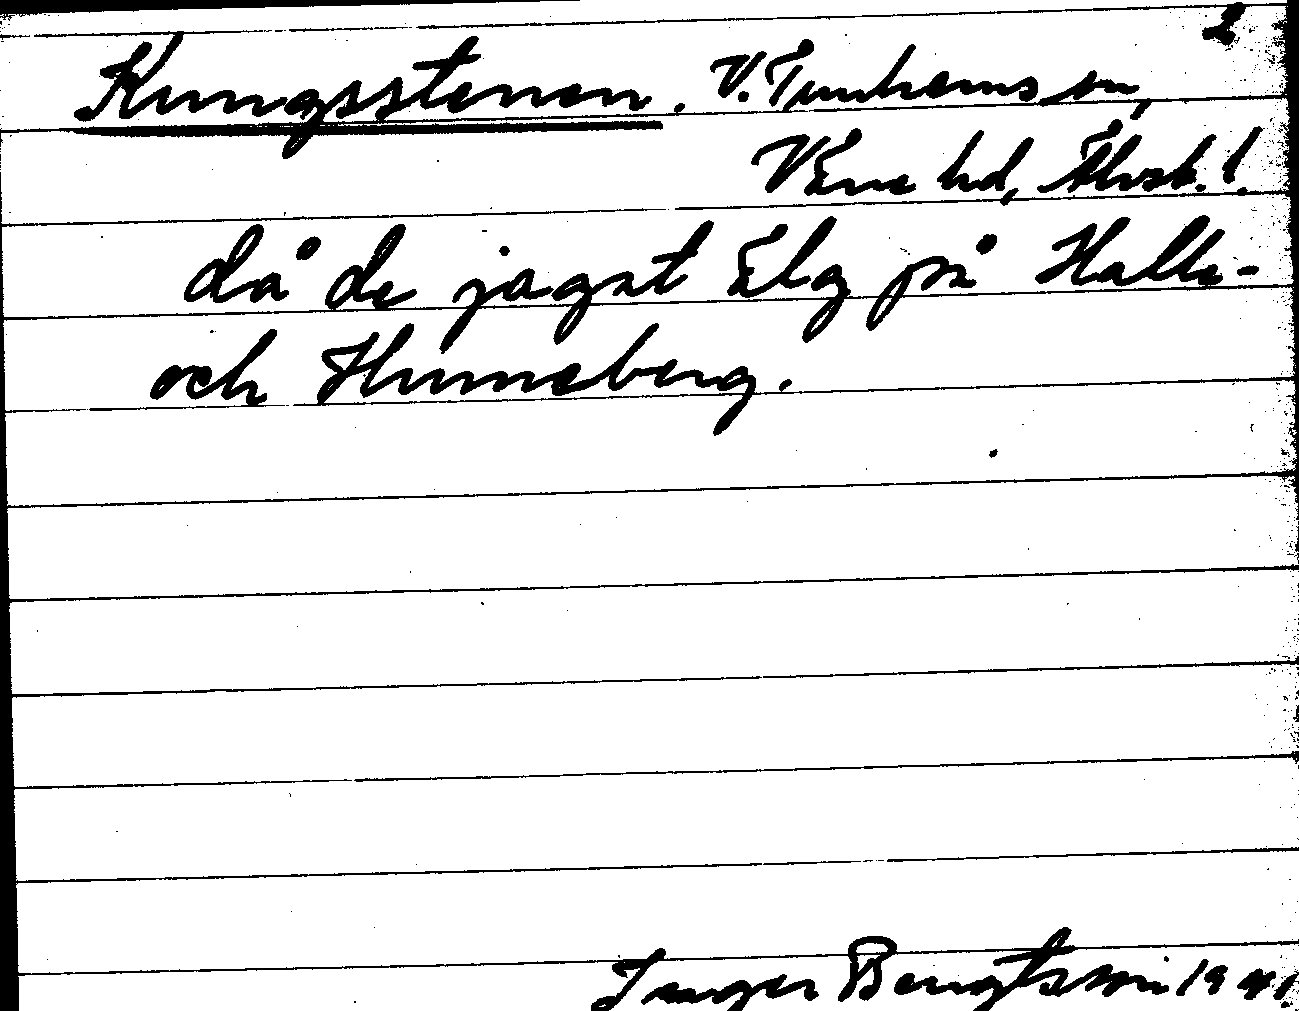 2
Kungsstenen. V. Tunhems sn,
Väne hd, Älvsb. l.
då de jagat älg på Halle-
och Hunneberg.
Inger Bengtsson 1941